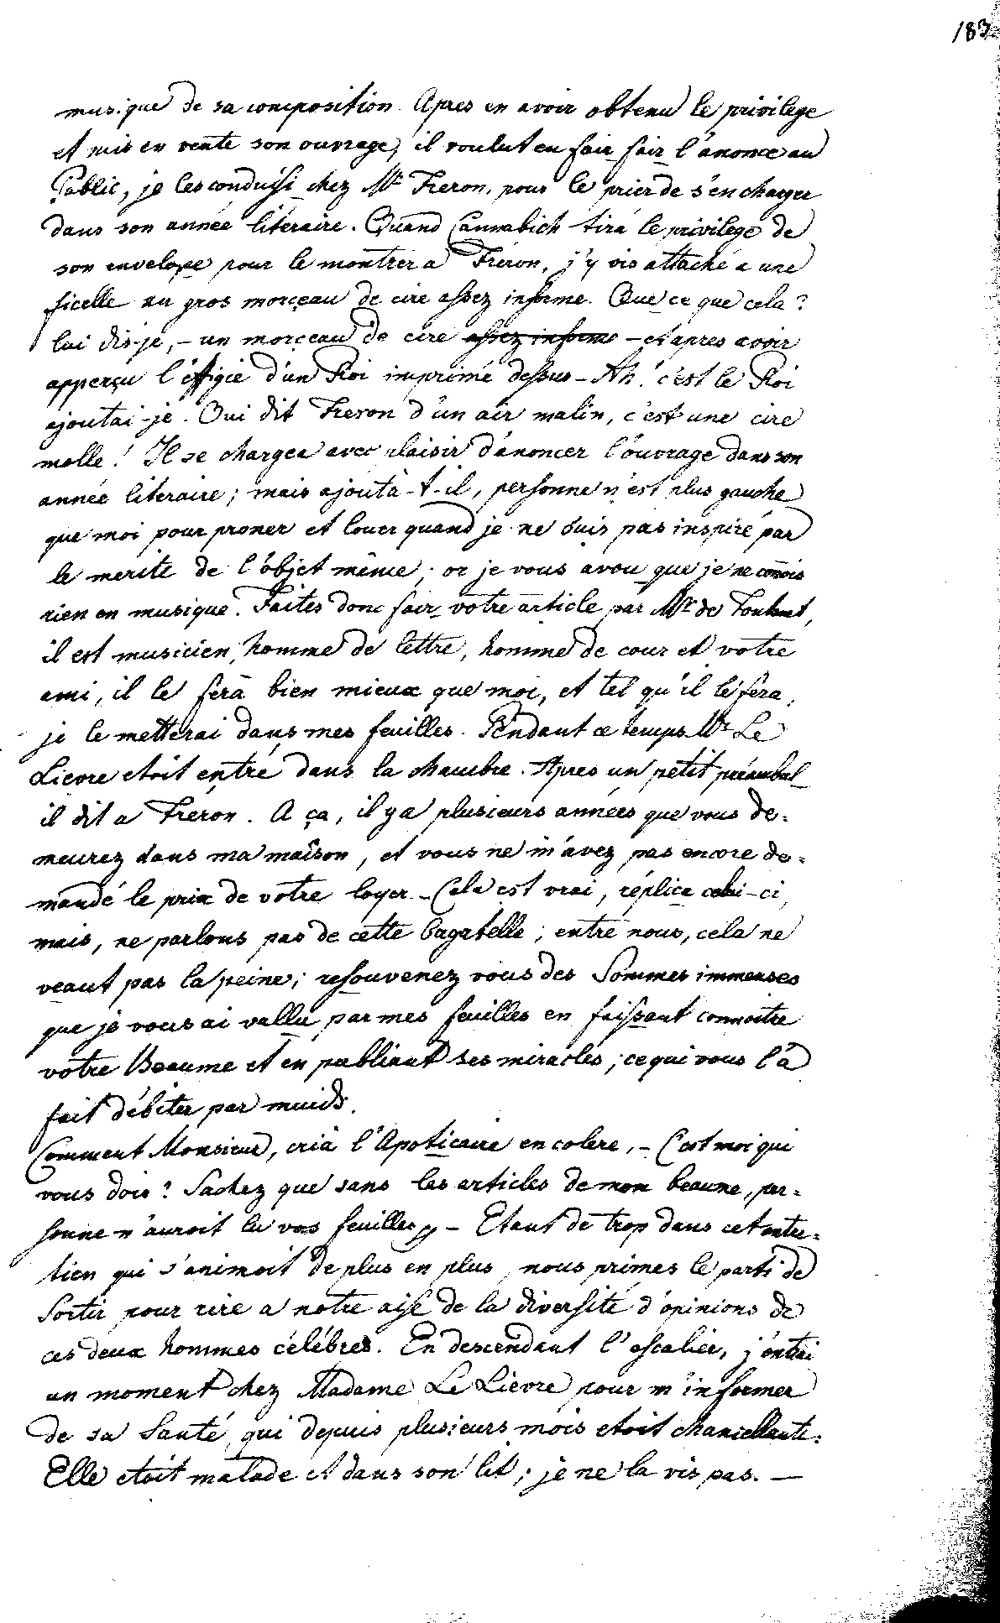 183
musique de sa composition. Apres en avoir obtenu le privilege
et mis en vente son ouvrage, il voulut en fair fair l'anonce au
Public, je les conduisi chez Mr Freron, pour le prier de s'en charger
dans son année literaire. Quand Cannabich tira le privilege de
son envelope pour le montrer a Freron, j'y vis attaché a une
ficelle un gros morçeau de cire assez informe. Que ce que cela?
lui dis-je, – un morçeau de cire assez informe – et apres avoir
apperçu l'éffigie d'un Roi imprimé dessus – Ah! c'est le Roi
ajoutai-je. Oui dit Freron d'un air malin, c'est une cire
molle! Il se chargea avec plaisir d'anoncer l'ouvrage dans son
année literaire; mais ajouta-t-il, personne n'est plus gauche
que moi pour proner et louer quand je ne suis pas inspiré par
le merite de l'objet même; or je vous avou que je ne connois
rien en musique. Faites donc fair votre article par Mr de
il est musicien, homme de lettre, homme de cour et votre
ami, il le fera bien mieux que moi, et tel qu'il le fera,
je le metterai dans mes feuilles. Pendant ce temps Mr Le
Lievre etoit entré dans la chambre. Apres un petit préambul
il dit a Freron. A ça, il y a plusieurs années que vous de=
meurez dans ma maison, et vous ne m'avez pas encore de=
mandé le prix de votre loyer – Cela est vrai, réplica celui-ci,
mais, ne parlons pas de cette bagatelle; entre nous, cela ne
veaut pas la peine; resouvenez vous des Sommes immenses
que je vous ai vallu par mes feuilles en faissant connoitre
votre Beaume et en publiant ses miracles; ce qui vous l'a
fait débiter par muids.
Comment Monsieur, cria l'Apoticaire en colere, – C'est moi qui
vous dois? Sachez que sans les articles de mon beaume, per=
sonne n'auroit lu vos feuilles – Etant de trop dans cet entre=
tien qui s'animoit de plus en plus, nous primes le parti de
Sortir pour rire a notre aise de la diversité d'opinions de
ces deux hommes célébres. En descendant l'escalier, j'entrai
un moment chez Madame Le Lievre pour m'informer
de sa Santé, qui depuis plusieurs mois etoit chancellante.
Elle etoit malade et dans son lit; je ne la vis pas. —